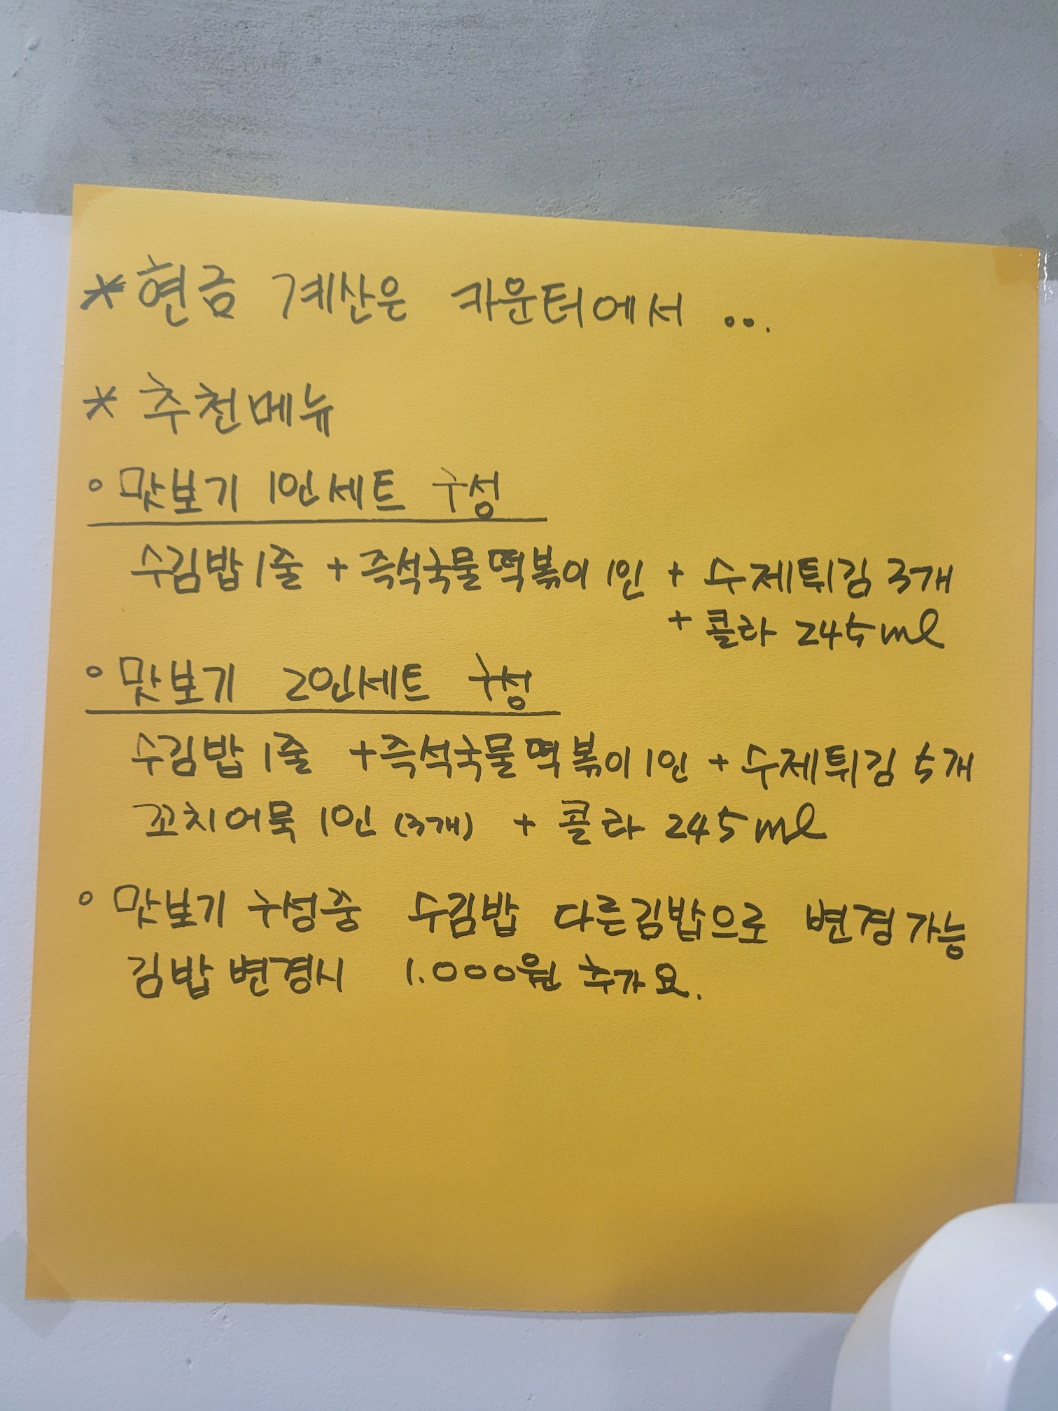 * 현금 계산은 카운터에서 ...
* 추천메뉴
◦ 맛보기 1인세트 구성
수김밥 1줄 + 즉석국물떡볶이 1인 + 수제튀김 3개
+ 콜라 245ml
◦ 맛보기 2인세트 구성
수김밥 1줄 + 즉석국물떡볶이 1인 + 수제튀김 5개
꼬치어묵 1인 (3개) + 콜라 245ml
◦ 맛보기 구성중 수김밥 다른김밥으로 변경가능
김밥 변경시 1.000원 추가요.